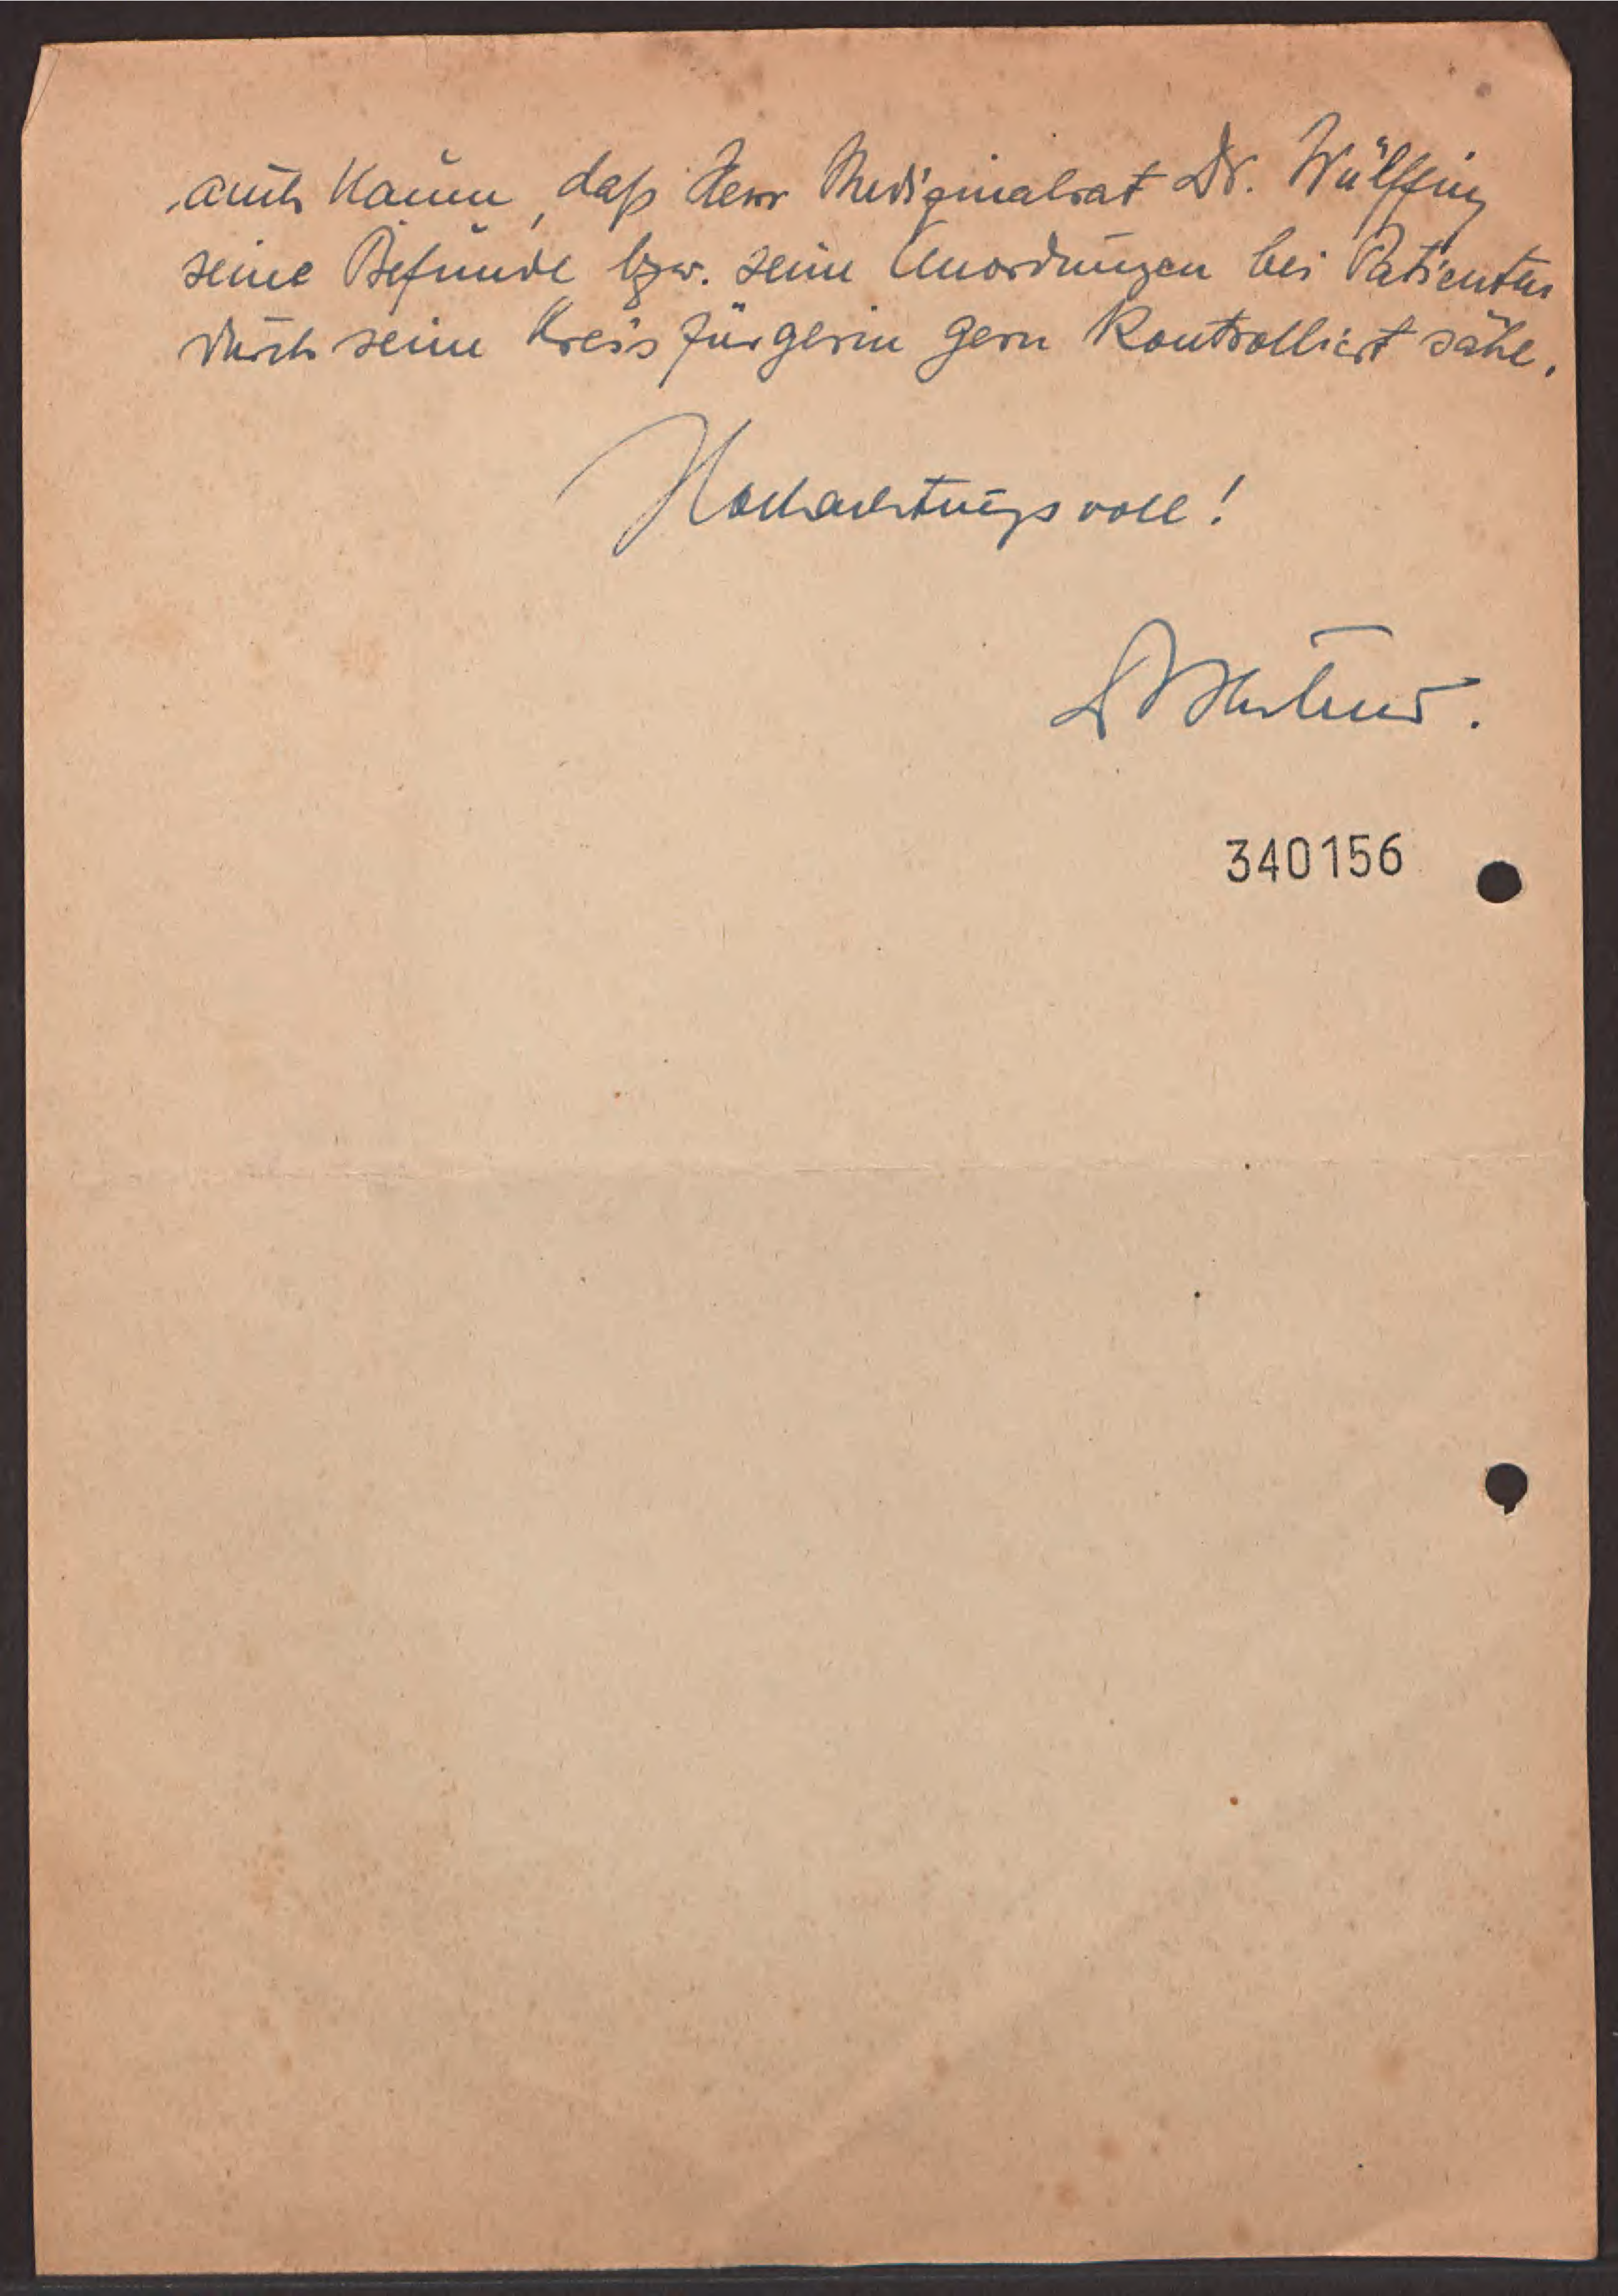 auch kaum, daß Herr Medizinalrat Dr. Wülffing
seine Befunde bzw. seine Anordnungen bei Patienten
durch seine Kreisfürgerin gern kontrolliert sähe.
Hochachtungsvoll!
340156